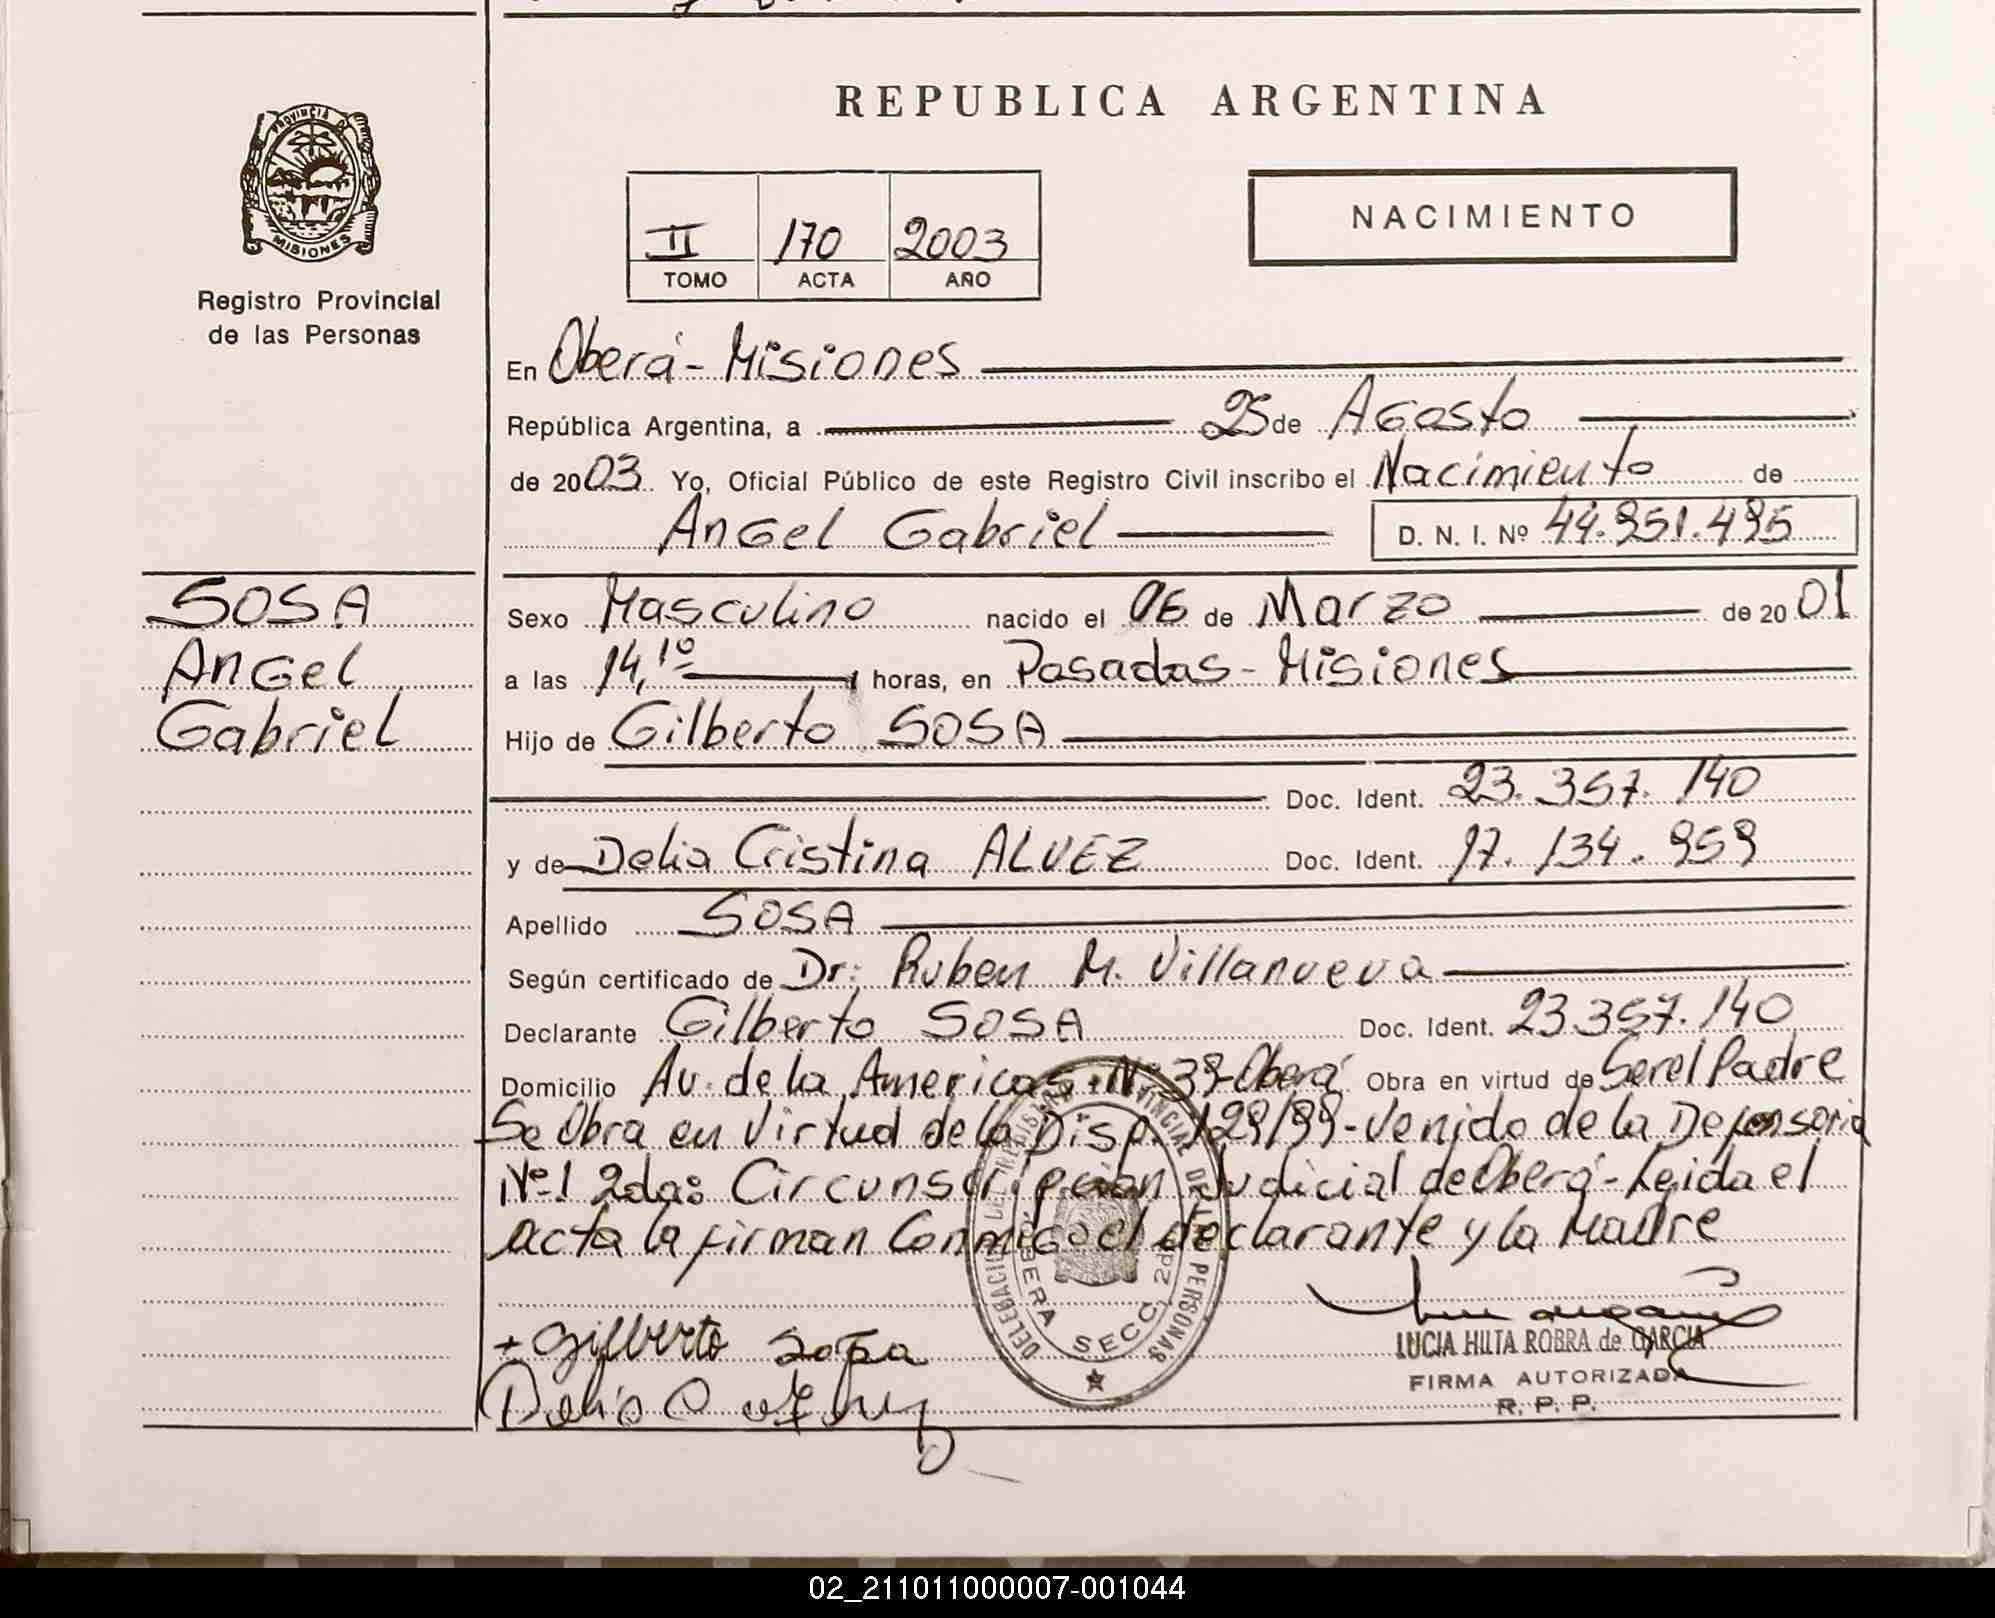 REPUBLICA ARGENTINA
PROVINCIA DE
MISIONES
Registro Provincial
de las Personas
II 170 2003
TOMO ACTA AÑO
NACIMIENTO
En Oberá - Misiones
República Argentina, a 25 de Agosto
de 2003 Yo, Oficial Público de este Registro Civil inscribo el Nacimiento de
Angel Gabriel D. N. I. Nº 44.951.495
SOSA
Angel
Gabriel
Sexo Masculino nacido el 06 de Marzo de 2001
a las 14,10 horas, en Posadas - Misiones
Hijo de Gilberto SOSA
Doc. Ident. 23.357.140
y de Delia Cristina ALVEZ Doc. Ident. 17.134.959
Apellido SOSA
Según certificado de Dr: Ruben M. Villanueva
Declarante Gilberto SOSA Doc. Ident. 23.357.140
Domicilio Av. de la Americas Nº 39 - Oberá Obra en virtud de Ser el Padre
Se Obra en Virtud de la Disp. 129/99 - Venido de la Defensoria
Nº 1 2da: Circunscripción Judicial de Oberá - Leida el
acta la firman Conmigo el declarante y la Madre
DELEGACION DEL REGISTRO PROVINCIAL DE LAS PERSONAS
OBERA SECC. 2da
+ Gilberto Sosa
LUCIA HILTA ROBRA de GARCIA
FIRMA AUTORIZADA
R. P. P.
02_211011000007-001044